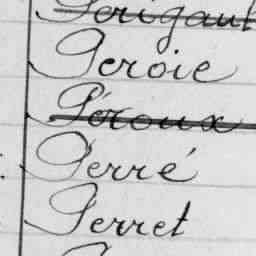 Perigault
Peroie
Péroux
Perré
Perret